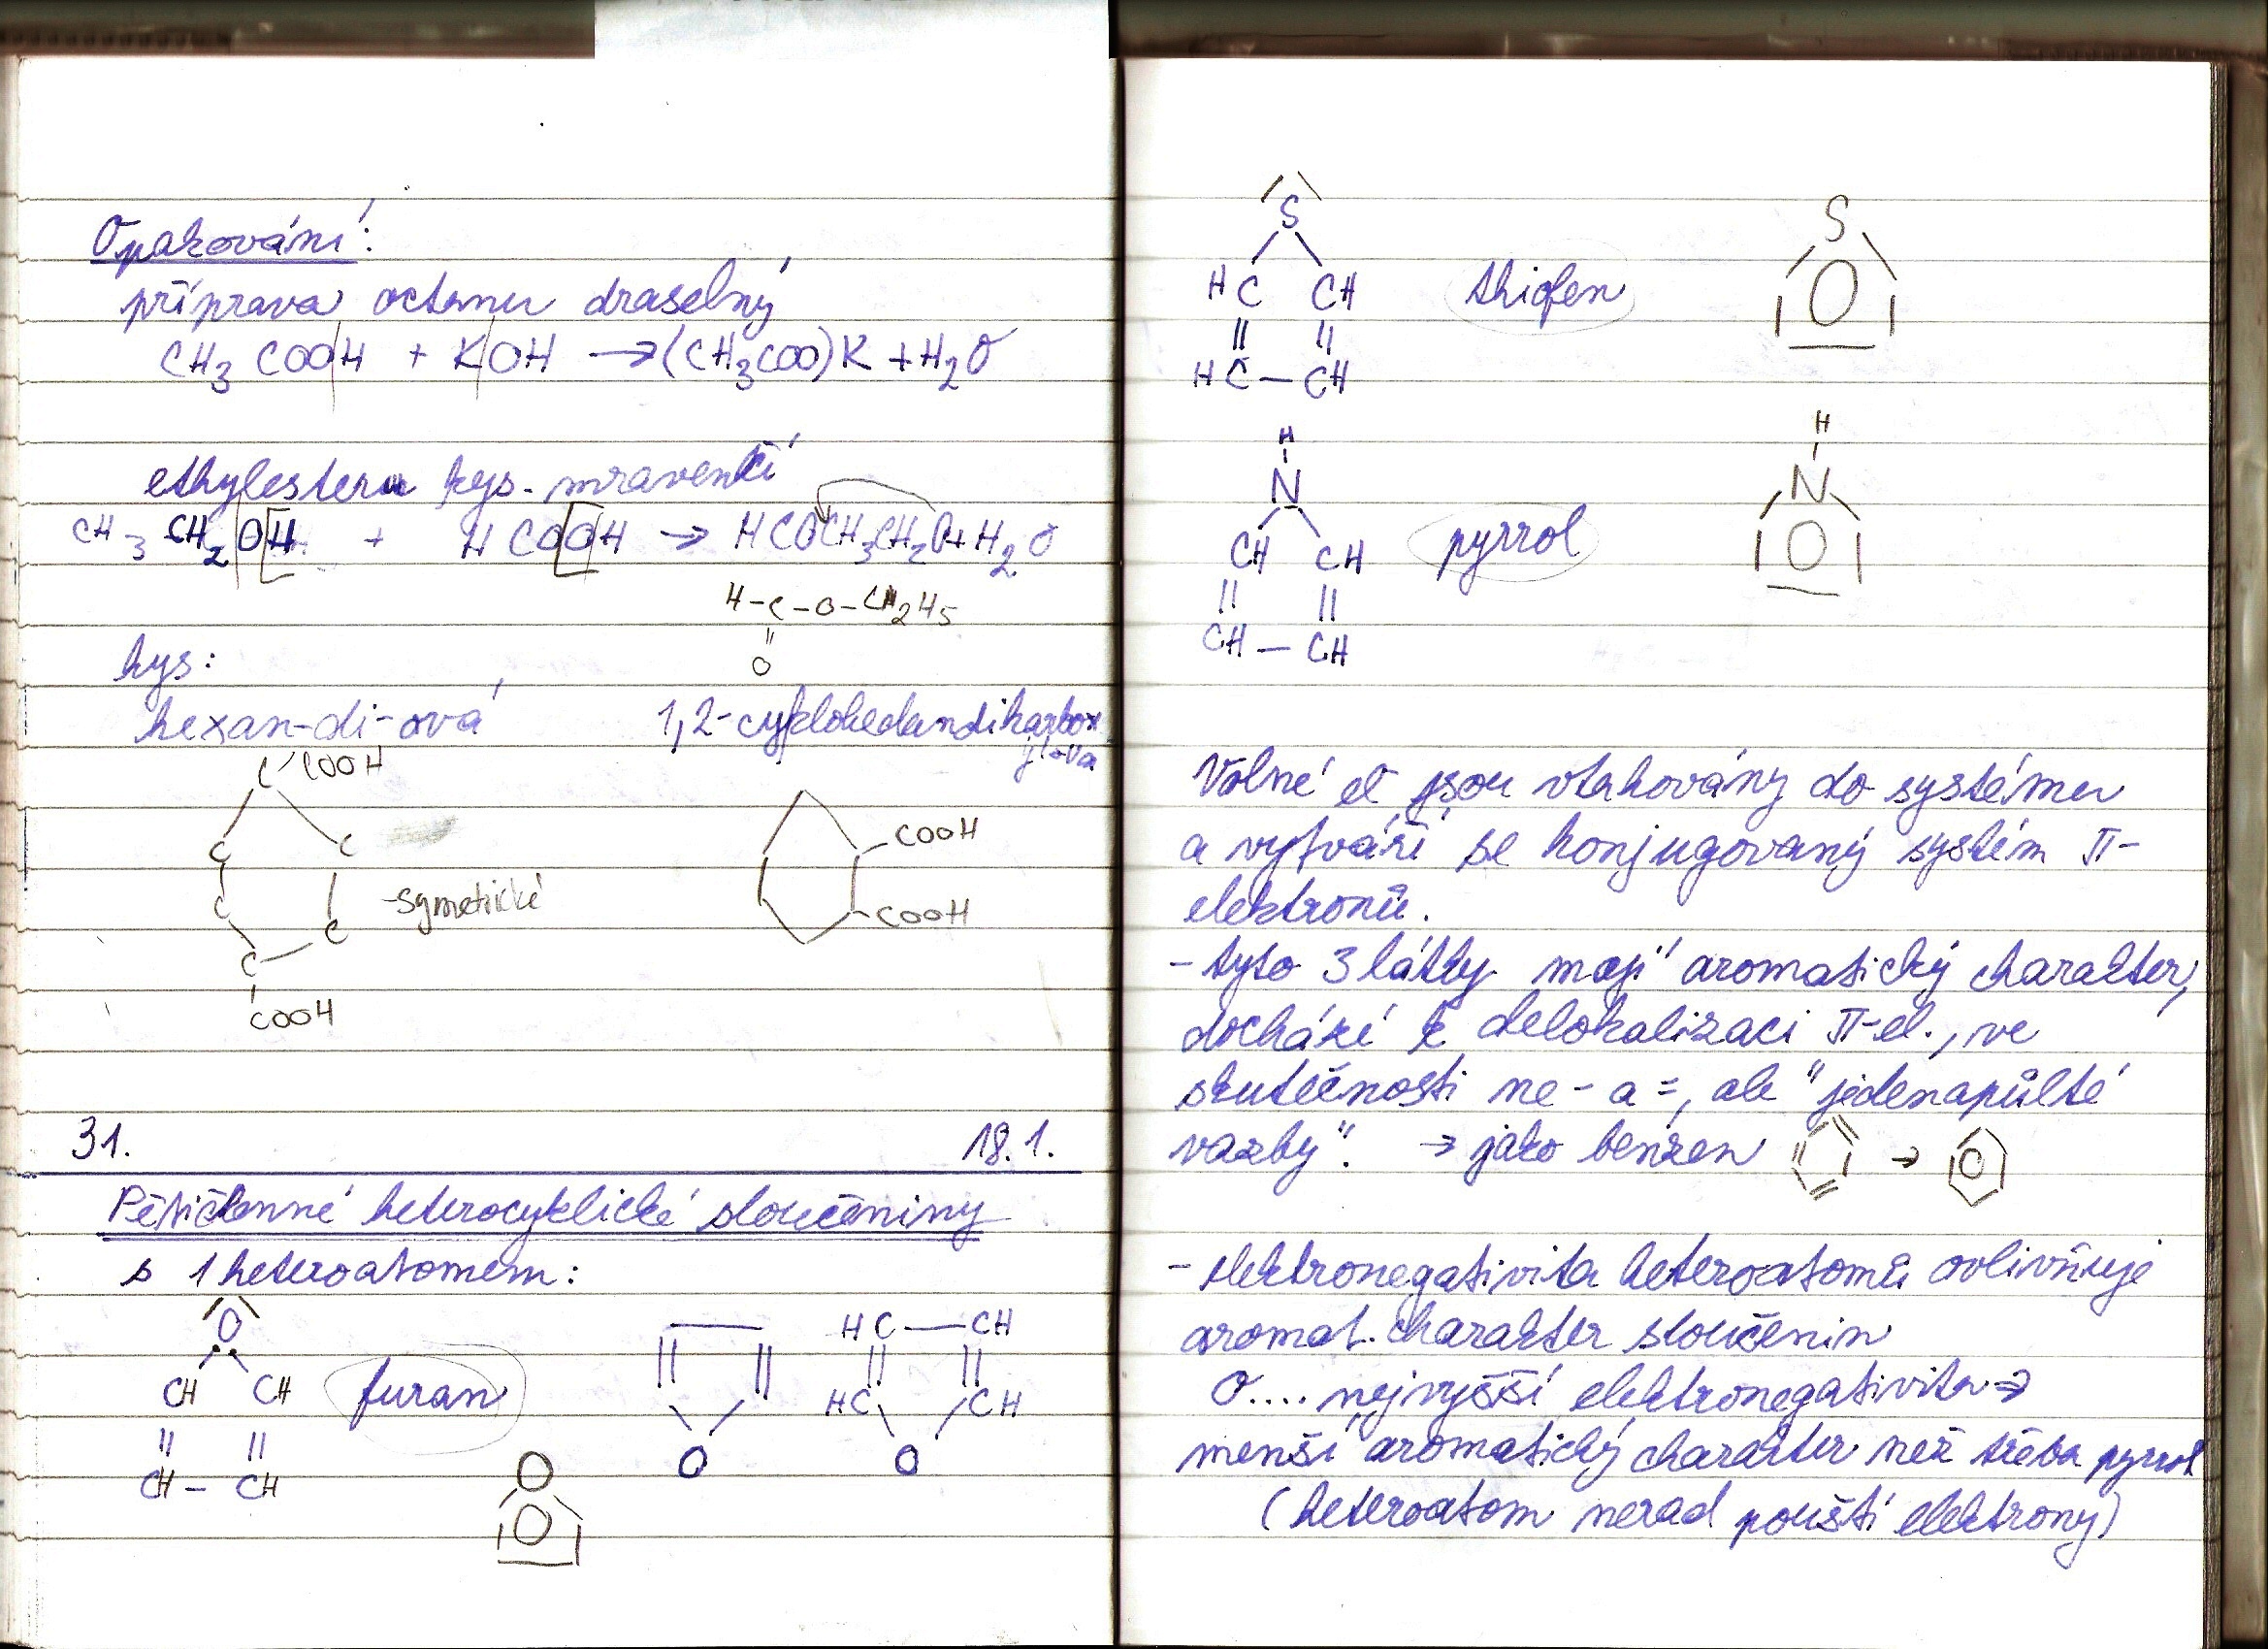 Opakování:
příprava octanu draselný
CH3 COOH + KOH → (CH3COO)K + H2O
ethylesteru kys. mravenčí
CH3 CH2 OH + H COOH → HCOCH3CH2O + H2O
H-C-O-CH2H5
O
kys:
hexan-di-ová
1,2-cyklohexandikarbox
ylová
C COOH
C C COOH
C C -symetrické
C COOH
COOH
31. 18.1.
Pětičlenné heterocyklické sloučeniny
s 1 heteroatomem:
O
CH CH furan
CH - CH
O
HC — CH
HC CH
O O
S
HC CH thiofen
HC — CH
S
H
N
CH CH pyrrol
CH — CH
H
N
Volné el jsou vtahovány do systému
a vytváří se konjugovaný systém π-
elektronů.
- tyto 3 látky mají aromatický charakter,
dochází k delokalizaci π-el., ve
skutečnosti ne - a =, ale "jedenapůlté
vazby". → jako benzen →
- elektronegativita heteroatomů ovlivňuje
aromat. charakter sloučenin
O.... nejvyšší elektronegativita ⇒
menší aromatický charakter než třeba pyrrol
(heteroatom nerad pouští elektrony)